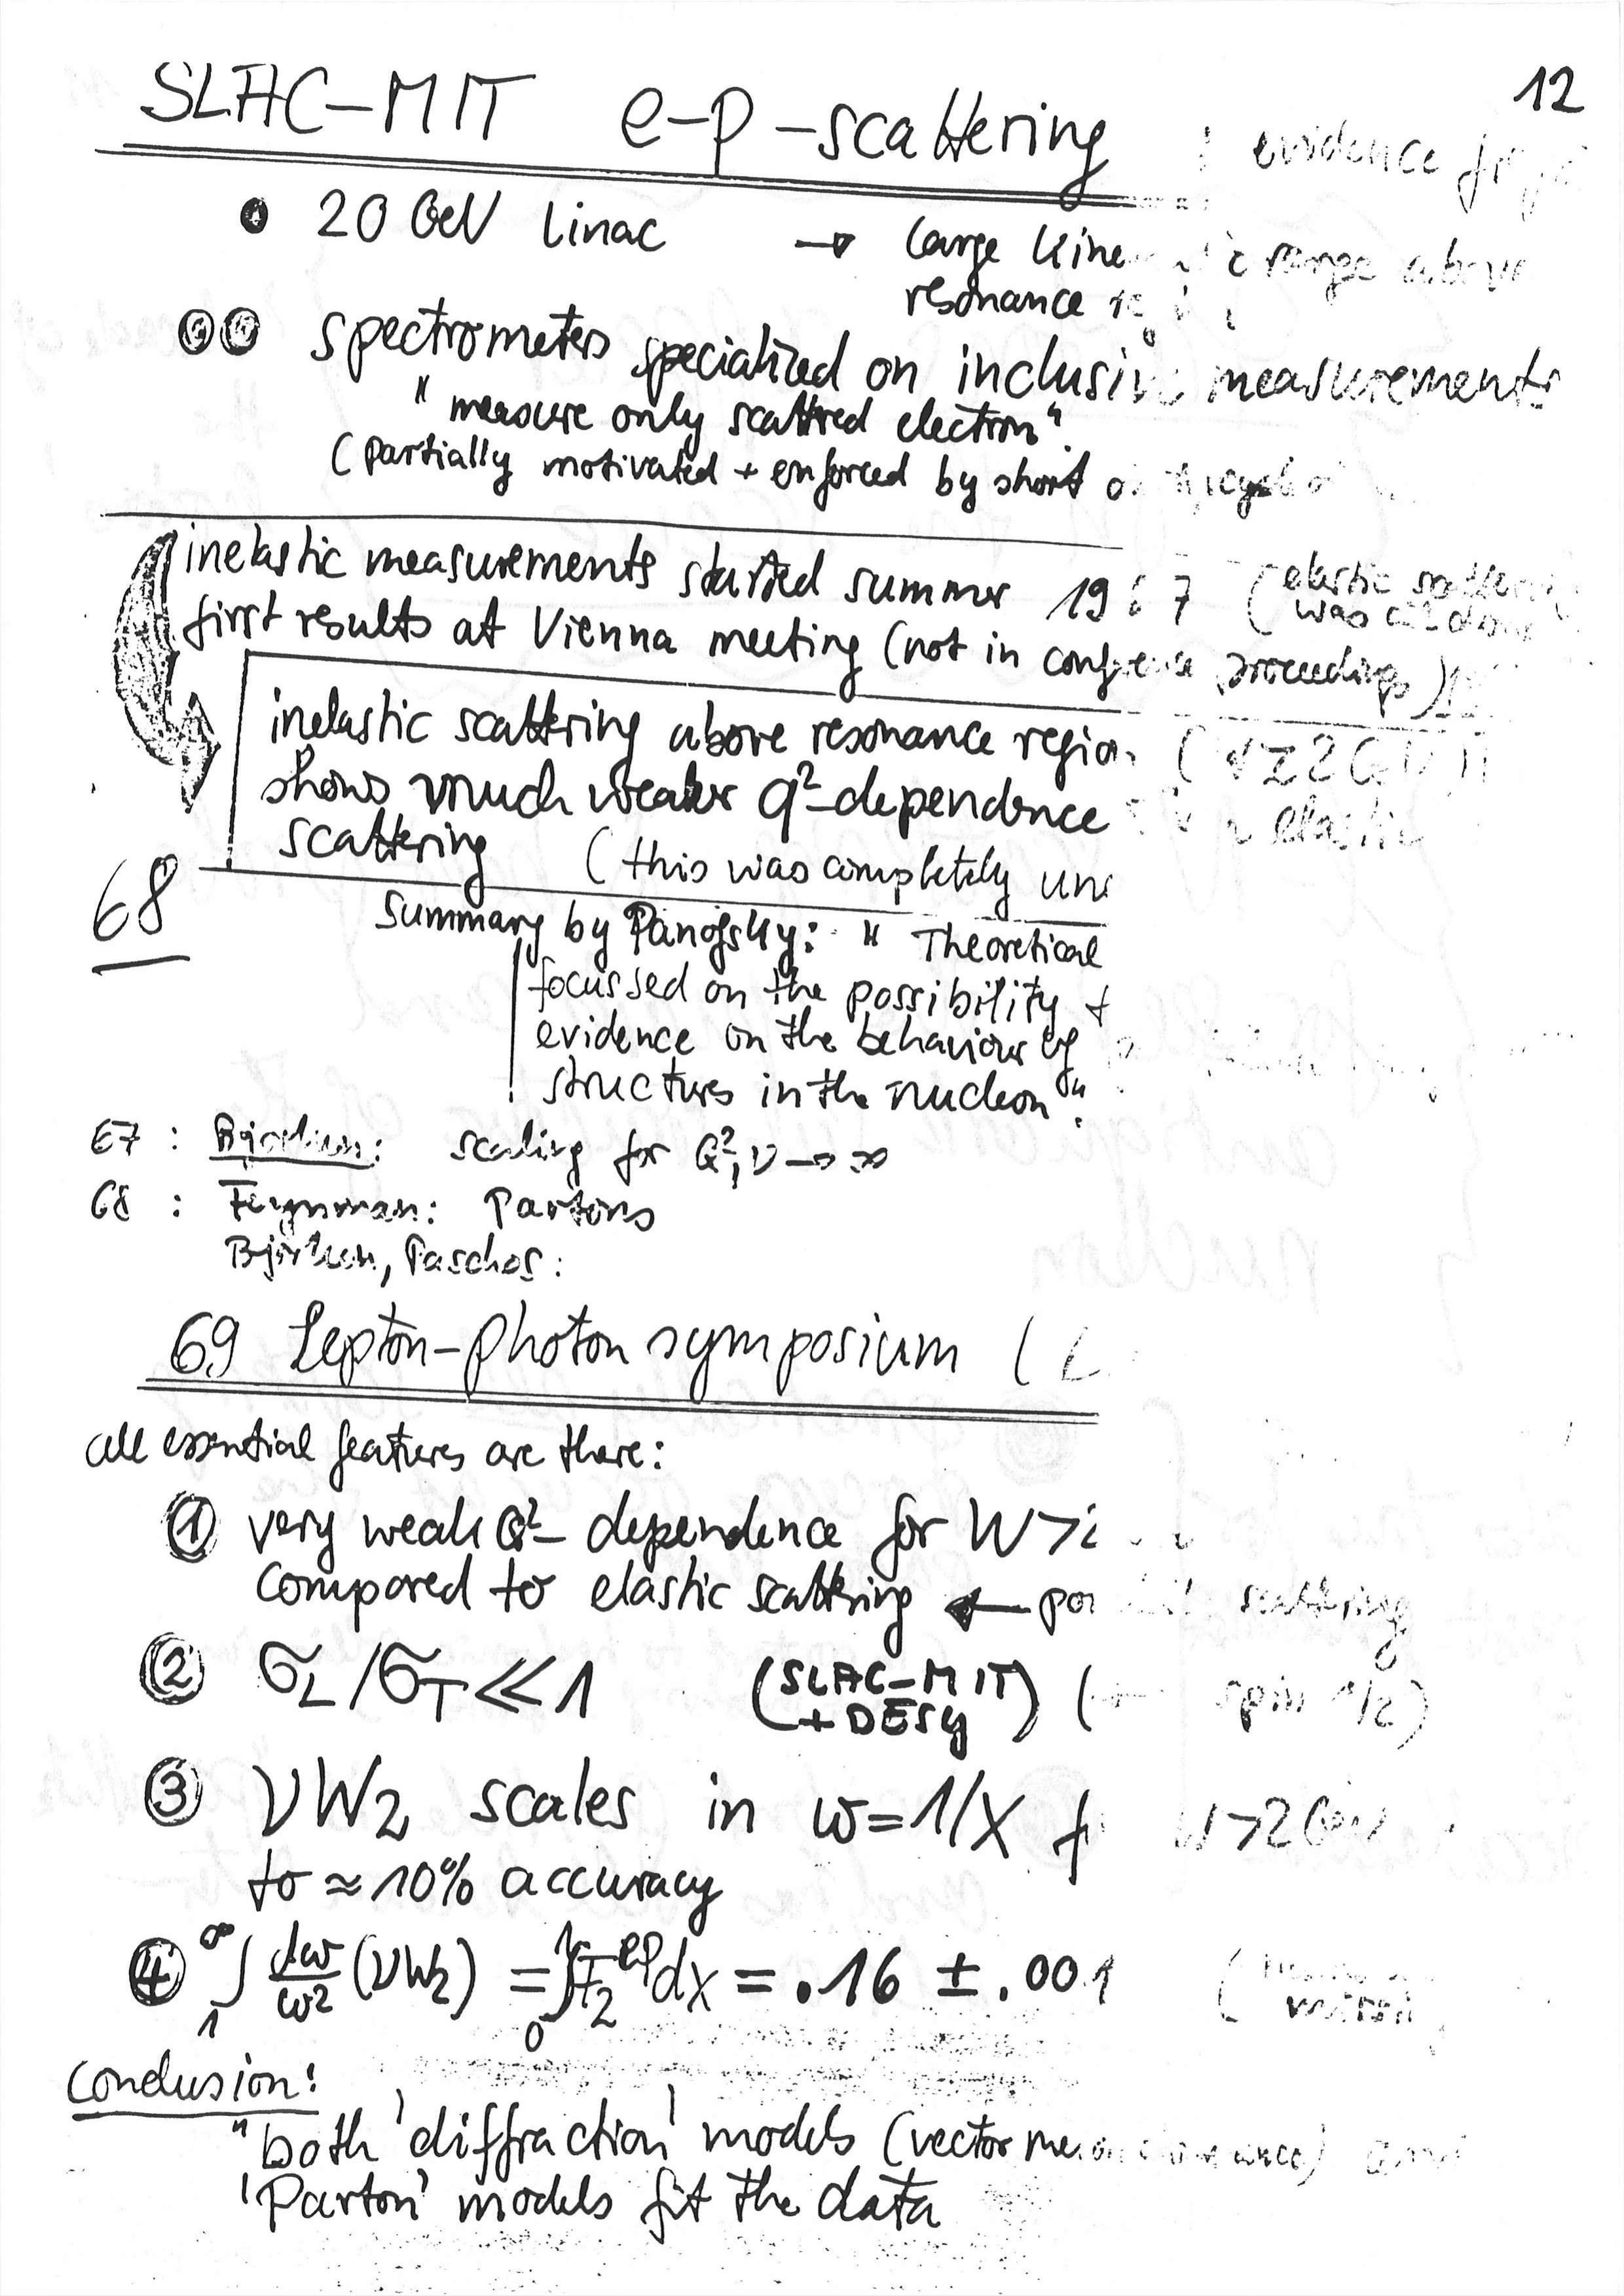 12
SLAC-MIT e-p-scattering : evidence
• 20 GeV Linac → large kine range above
resonance
spectrometers specialized on inclusive measurements
" measure only scattred electron".
(partially motivated + enforced by short
inelastic measurements started summer 19 7 (elastic
was
first results at Vienna meeting (not in conference proceedings)
inelastic scattering above resonance region
shows much weaker q²-dependence elastic
scattering (this was completely
68
Summary by Panofsky: " Theoretical
focussed on the possibility
evidence on the behaviour of
structures in the nucleon".
67 : Bjorken: scaling for Q², ν → ∞
68 : Feynman: Partons
Björken, Paschos:
69 Lepton-photon symposium (
all essential features are there:
① very weak Q²- dependence for W>
compared to elastic scattering ← scattering
② σL/σT ≪ 1 (SLAC-MIT + DESY) ( spin 1/2)
③ νW2 scales in ω=1/x W>2GeV
to ≈ 10% accuracy
④ ∫₁^∞ dω/ω² (νW2) = ∫₀¹ F2^ep dx = .16 ± .001
Conclusion:
"both 'diffraction' models (vector
'Parton' models fit the data